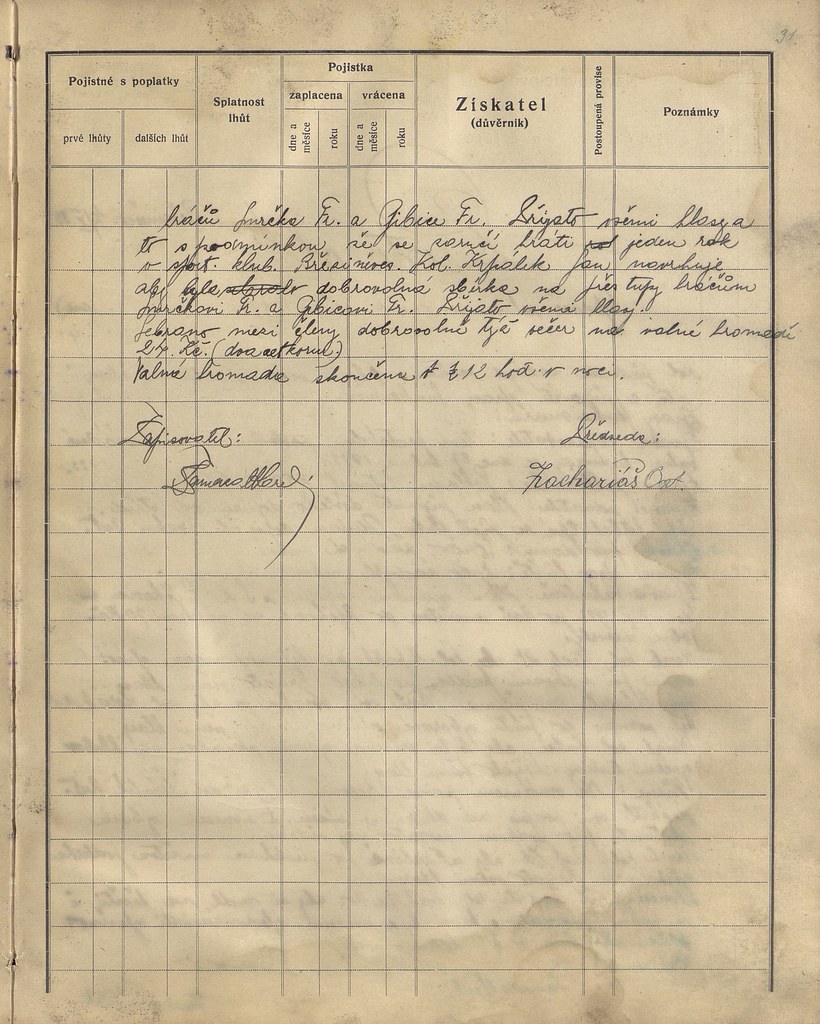 31.
Pojistné s poplatky
Pojistka
Splatnost
lhůt
zaplacena
vrácena
Získatel
(důvěrník)
Postoupená provise
Poznámky
prvé lhůty
dalších lhůt
dne a
měsíce
roku
dne a
měsíce
roku
hráčů Jurčka Fr. a Gibice Fr. Přijato všemi hlasy a
to s podmínkou že se zaručí hráti jeden rok
v sport. klub. Břesiněves. Kol. Krpálek Jan navrhuje
aby byla dobrovolná sbírka na přestupy hráčům
Jurčkovi Fr. a Gibicovi Fr. Přijato všemi hlasy.
Sebráno mezi členy dobrovolně týž večer na valné hromadě
Kč. (dvacet korun)
Valná hromada skončena v 12 hod. v noci.
Zapisovatel:
Předseda:
Zachariáš